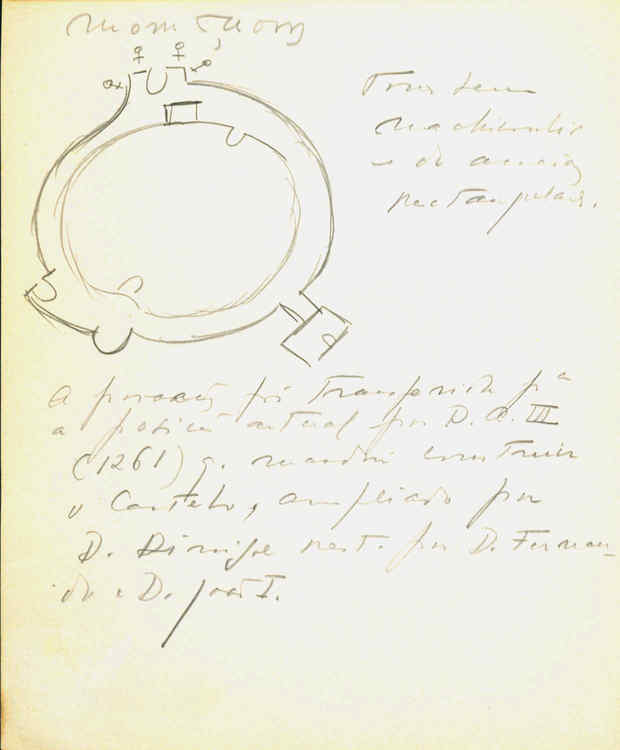 Tour tem
machiculis
e de
rectangular.
A povoação foi transferida pª
a posição actual por D. A. III
(1261) q. mandou construir
o Castelo, ampliado por
D. Diniz e rest. por D. Fernan-
do e D. João I.